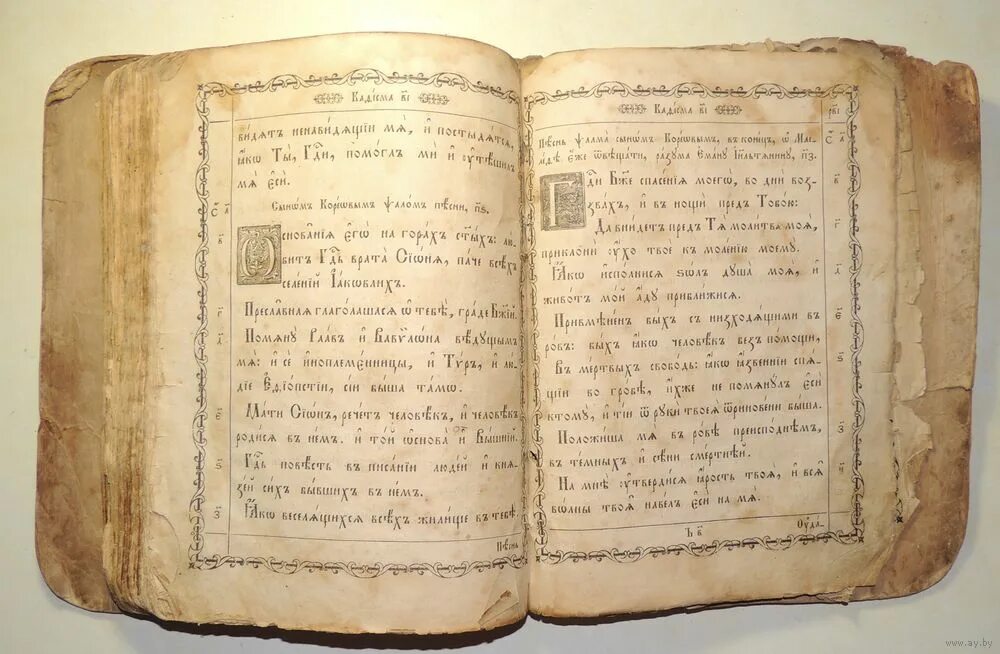 Каѳісма в҃і
видѧтъ ненавидѧщіи мѧ, и҆ постыдѧтсѧ,
ꙗ҆́кѡ Ты̀, Гдⷭ҇и, помоглъ ми и҆ ᲂу҆тѣшилъ
мѧ є҆сѝ.
Сынѡмъ Корѡвымъ ѱаломъ пѣсни, п҃ѕ.
Ѡ҆снованїѧ є҆гѡ̀ на горахъ ст҃ыхъ: лю-
битъ Гдⷭ҇ь врата Сїѡнѧ, паче всѣхъ
селенїй І҆аковлихъ.
Преславнаѧ глаголашасѧ ѡ҆ тебѣ, граде Бж҃їй.
Помѧнꙋ Раавъ и҆ Вавѷлѡна вѣдꙋщымъ
мѧ: и҆ сѐ и҆ноплеменницы, и҆ Тѵръ, и҆ лю-
дїе Еѳїопстїи, сїи быша тамѡ.
Мати Сїѡнъ, речетъ человѣкъ, и҆ человѣкъ
родисѧ въ немъ. и҆ той ѡ҆снова и҆̀ Вышнїй.
Гдⷭ҇ь повѣсть въ писанїи людей и҆ кнѧ-
зей сихъ бывшихъ въ немъ.
Ꙗ҆́кѡ веселѧщихсѧ всѣхъ жилище въ тебѣ.
Пѣснь
Каѳісма в҃і
Пѣснь ѱалма сынѡмъ Корѡвымъ, въ конецъ, ѡ҆ Мае-
леѳѣ є҆же ѿвѣщати, разꙋма Еманꙋ І҆ильтѧнинꙋ, п҃з.
Гдⷭ҇и Бж҃е спасенїѧ моегѡ, во дни воз-
звахъ, и҆ въ нощи предъ Тобою:
Да внидетъ предъ Тѧ̀ молитва моѧ,
приклони ᲂу҆хо твоѐ къ моленїю моемꙋ.
Ꙗ҆́кѡ и҆сполнисѧ ѕѡлъ дꙋша моѧ, и҆
животъ мой а҆дꙋ приближисѧ.
Привмѣненъ быхъ съ низходѧщими въ
ровъ: быхъ ꙗ҆кѡ человѣкъ безъ помощи,
Въ мертвыхъ свободь: ꙗ҆кѡ ꙗ҆звеннїи спѧ-
щїи во гробѣ, и҆хже не помѧнꙋлъ є҆сѝ
ктомꙋ, и҆ тїи ѿ рꙋки твоеѧ ѿриновени быша.
Положиша мѧ въ ровѣ преисподнемъ,
въ темныхъ и҆ сѣни смертнѣй.
На мнѣ ᲂу҆твердисѧ ꙗ҆рость твоѧ, и҆ всѧ̑
вѡлны твоѧ навелъ є҆сѝ на мѧ̀.
Ъ в҃
Оуда-
www.ay.by